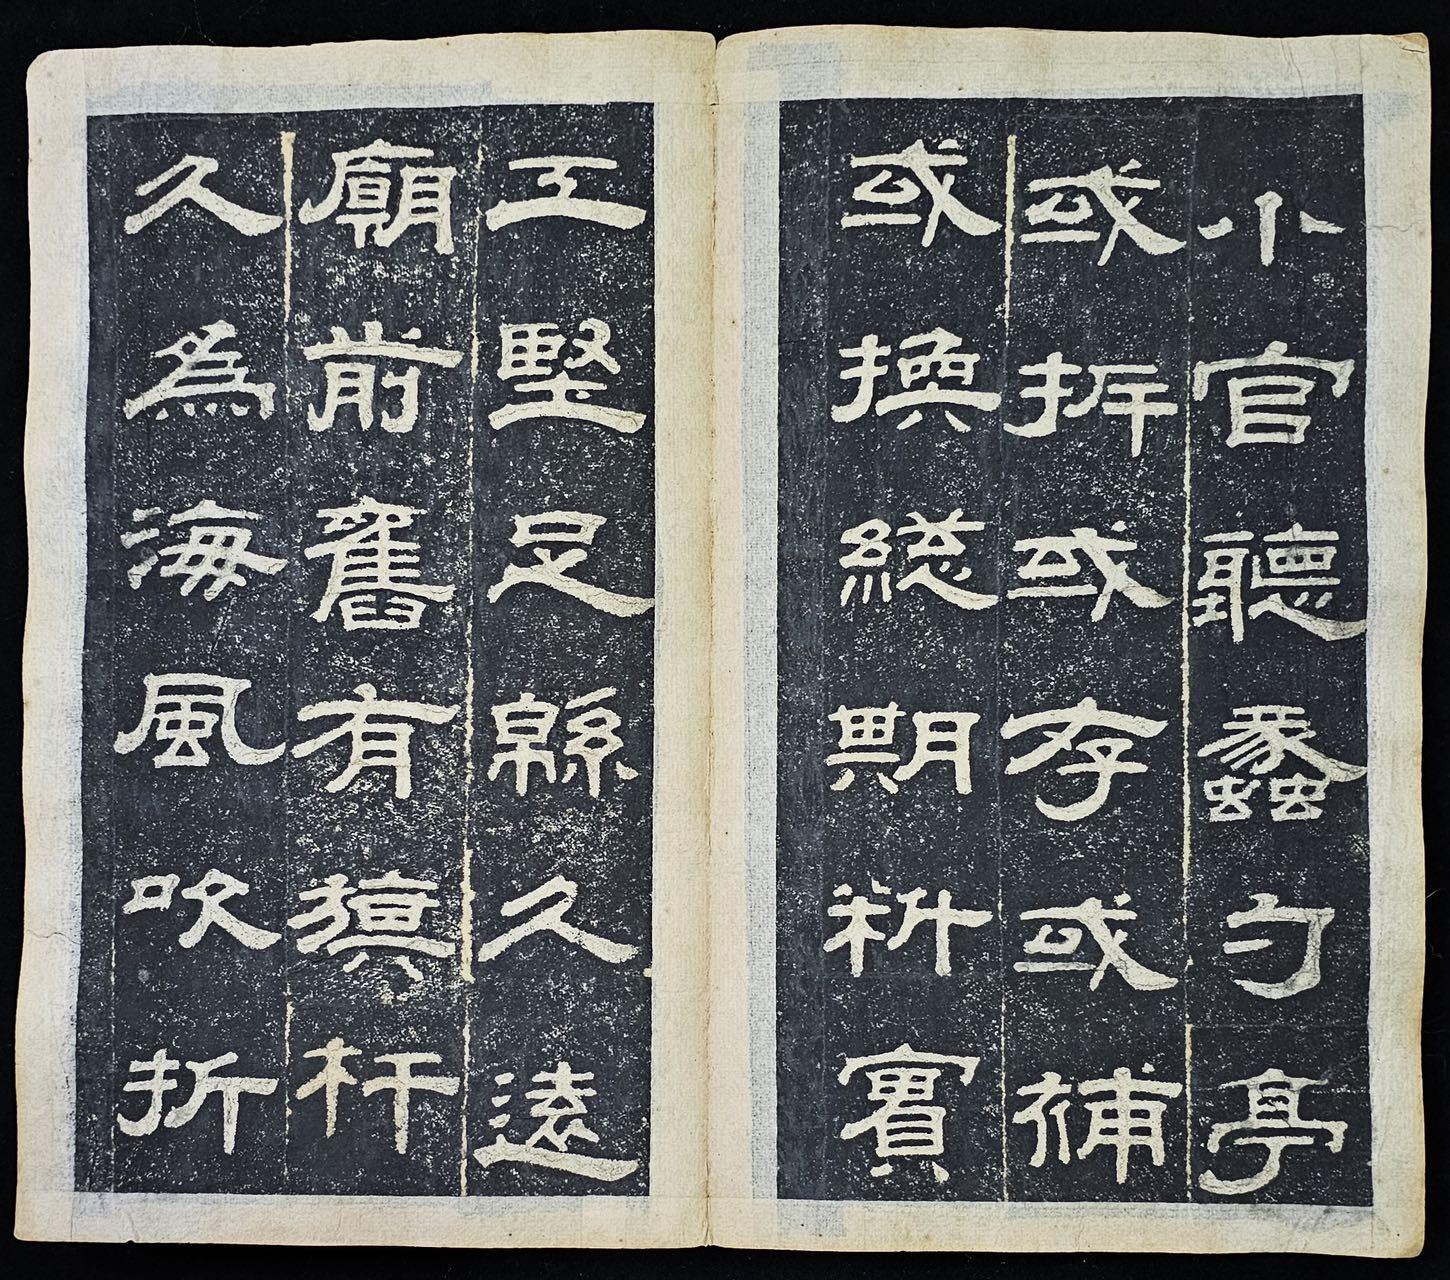 小官聽蠡勺亭
或折或存或補
或換總期料實
工堅足緜久遠
廟前舊有旗杆
久為海風吹折